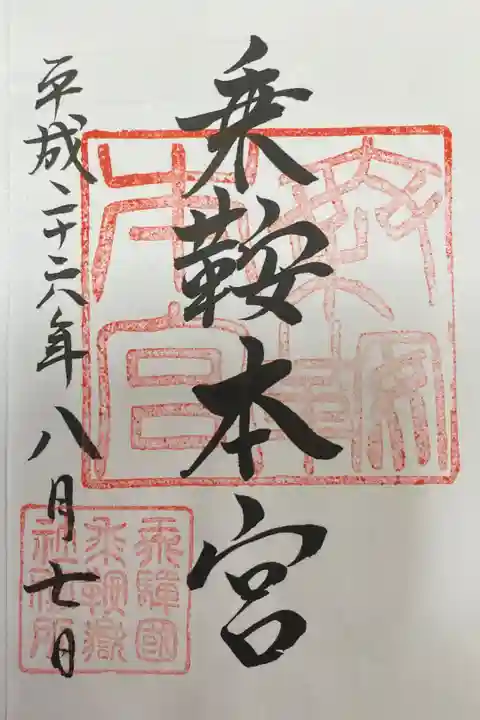 乗鞍本宮
平成二十六年八月七日
乗鞍
本宮
飛騨國
乗鞍嶽
社務所